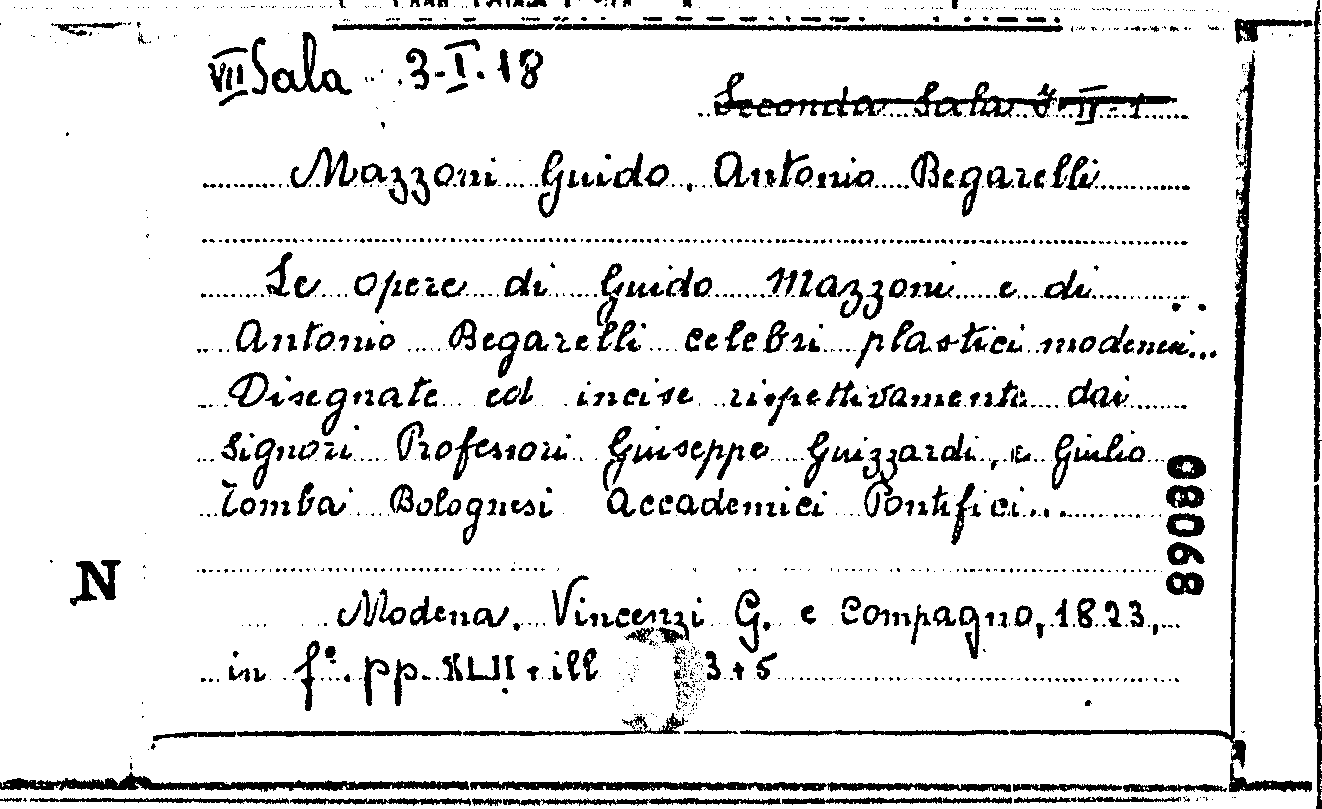 VII Sala 3-I.18
Seconda Sala I-II-1
Mazzoni Guido. Antonio Begarelli
Le opere di Guido Mazzoni e di
Antonio Begarelli celebri plastici modenesi...
Disegnate ed incise rispettivamente dai
signori Professori Giuseppe Guizzardi, e Giulio
Tomba Bolognesi Accademici Pontifici...
89080
N
Modena. Vincenzi G. e Compagno, 1823,
in f.° pp. XLII + ill 3+5